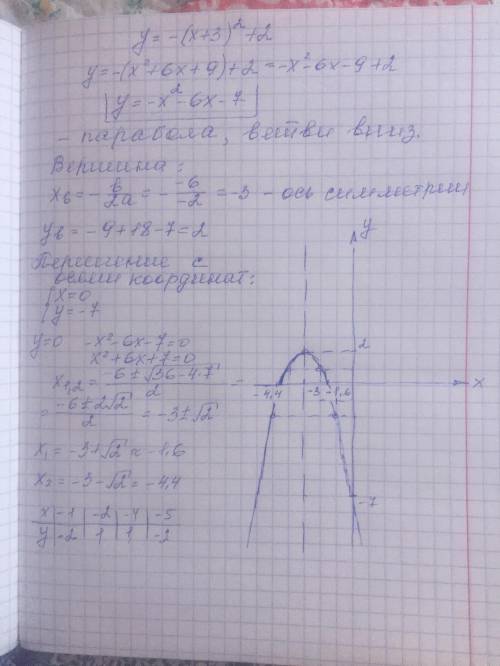 y=-(x+3)²+2
y=-(x²+6x+9)+2=-x²-6x-9+2
y=-x²-6x-7
- парабола, ветви вниз.
Вершина:
xв=-b/2a=-(-6)/(-2)=-3 - ось симметрии
yв=-9+18-7=2
Пересечение с
осями координат:
{x=0
{y=-7
y=0 -x²-6x-7=0
x²+6x+7=0
x₁,₂=(-6±√36-4·7)/2=
=(-6±2√2)/2=-3±√2
x₁=-3+√2≈-1,6
x₂=-3-√2=-4,4
x -1 -2 -4 -5
y -2 1 1 -2
y
2
-4,4 -3 -1,6 x
-7